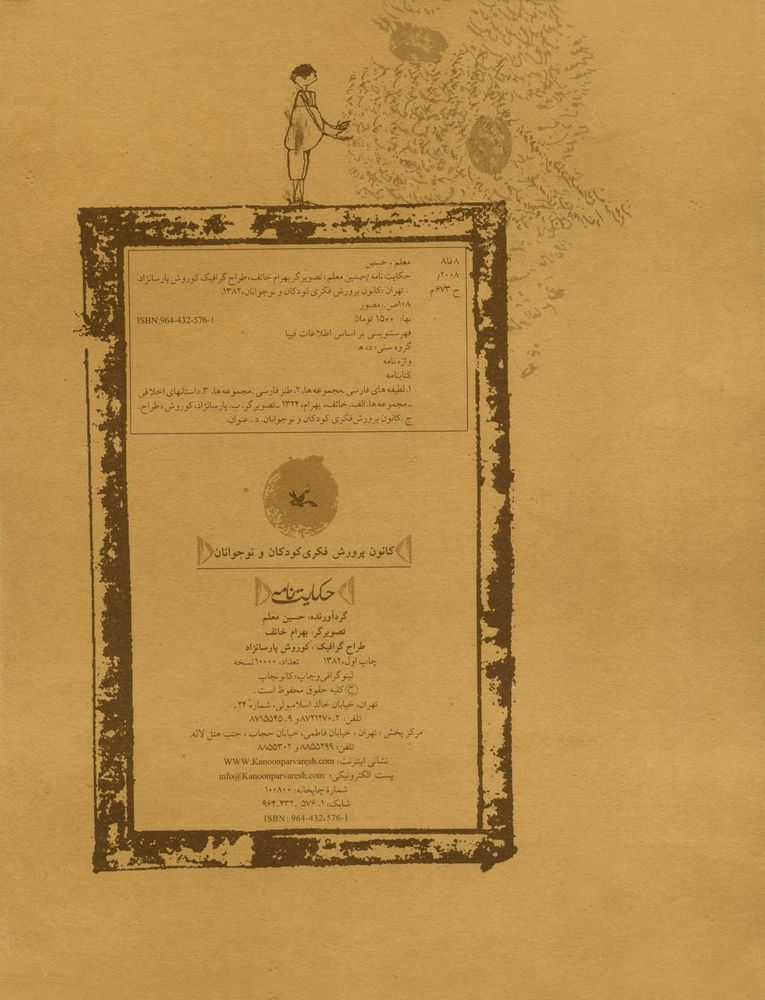 ۸فا۸ معلم، حسین
۲۰۰۸/ حکایت نامه/حسین معلم؛ تصویرگر بهرام خائف، طراح گرافیک کوروش پارسانژاد.
ح ۶۷۳م - تهران: کانون پرورش فکری کودکان و نوجوانان، ۱۳۸۲.
۱۰۸ص.:مصور
بها: ۱۵۰۰ تومان ISBN:964-432-576-1
فهرستنویسی بر اساس اطلاعات فیپا
گروه سنی: د، ه
واژه نامه
کتابنامه
۱. لطیفه های فارسی ـ مجموعه ها. ۲. طنز فارسی ـ مجموعه ها. ۳. داستانهای اخلاقی
ـ مجموعه ها. الف. خائف، بهرام، ۱۳۲۴ ـ تصویرگر. ب. پارسانژاد، کوروش، طراح.
ج. کانون پرورش فکری کودکان و نوجوانان. د. عنوان.
کانون پرورش فکری کودکان و نوجوانان
حکایت نامه
گردآورنده: حسین معلم
تصویرگر: بهرام خائف
طراح گرافیک: کوروش پارسانژاد
چاپ اول، ۱۳۸۲ تعداد: ۱۰۰۰۰ نسخه
لیتوگرافی و چاپ: کانون چاپ
کلیه حقوق محفوظ است.
تهران، خیابان خالد اسلامبولی، شماره ۲۴.
تلفن: ۲-۸۷۲۱۲۷۰ و ۹-۸۷۱۵۵۴۵
مرکز پخش: تهران، خیابان فاطمی، خیابان حجاب، جنب هتل لاله.
تلفن: ۸۸۵۵۲۹۹ و ۸۸۵۵۳۰۲
نشانی اینترنت: WWW.Kanoonparvaresh.com
پست الکترونیکی: info@Kanoonparvaresh.com
شمارۀ چاپخانه: ۱۰۰۸۰۰
شابک: ۱-۵۷۶-۴۳۲-۹۶۴
ISBN: 964-432-576-1